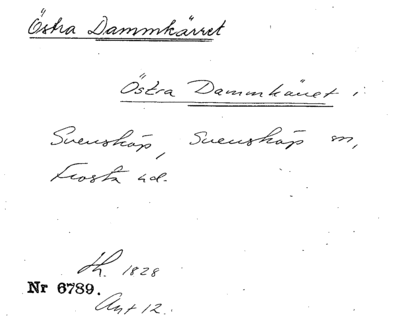 Östra Dammkärret
Östra Dammkärret i
Svensköp, Svensköp sn,
Frosta hd.
Lh. 1828
Nr 6789.
Ant 12.